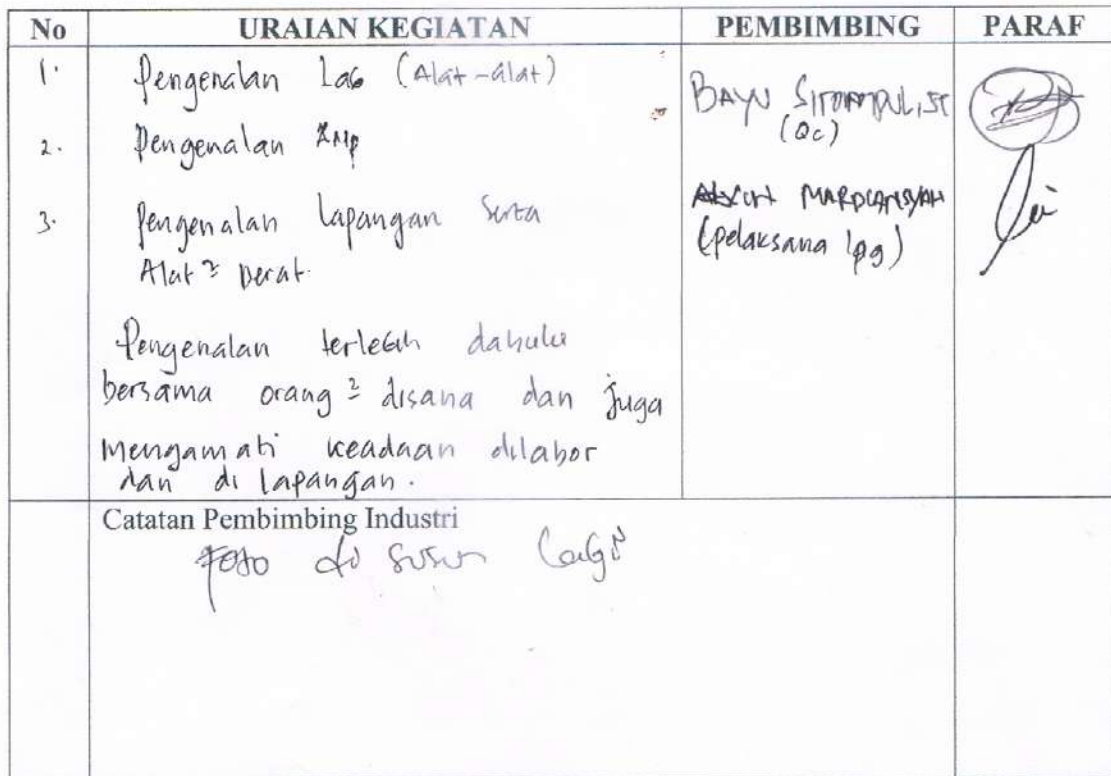 No URAIAN KEGIATAN PEMBIMBING PARAF
1. Pengenalan Lab (Alat-alat)
BAYU SITOMPUL, ST
(QC)
2. Pengenalan AMP
3. Pengenalan lapangan serta
Alat² berat.
MARDIANSYAH
(pelaksana lpg)
Pengenalan terlebih dahulu
bersama orang² disana dan juga
mengamati keadaan dilabor
dan di lapangan.
Catatan Pembimbing Industri
Foto di susun lagi